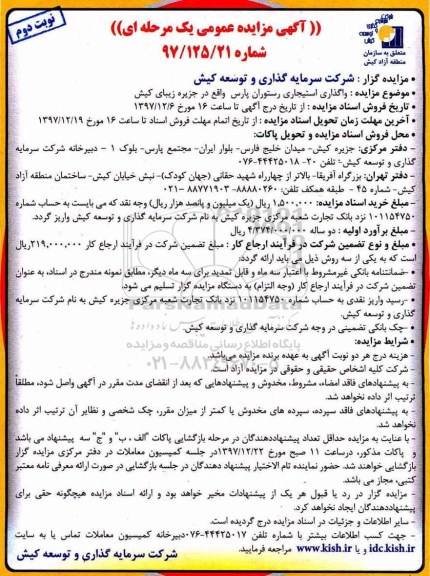 نوبت دوم
(( آگهی مزایده عمومی یک مرحله ای))
شماره ۹۷/۱۲۵/۲۱
متعلق به سازمان
منطقه آزاد کیش
• مزایده گزار : شرکت سرمایه گذاری و توسعه کیش
• موضوع مزایده : واگذاری استیجاری رستوران پارس واقع در جزیره زیبای کیش
• تاریخ فروش اسناد مزایده : از تاریخ درج آگهی تا ساعت ۱۶ مورخ ۱۳۹۷/۱۲/۶
• آخرین مهلت زمان تحویل اسناد مزایده : از تاریخ اتمام مهلت فروش اسناد تا ساعت ۱۶ مورخ ۱۳۹۷/۱۲/۱۹
• محل فروش اسناد مزایده و تحویل پاکات:
- دفتر مرکزی: جزیره کیش- میدان خلیج فارس- بلوار ایران- مجتمع پارس- بلوک ۱ - دبیرخانه شرکت سرمایه
گذاری و توسعه کیش- تلفن ۲۰- ۴۴۴۲۵۰۱۸-۰۷۶
- دفتر تهران: بزرگراه آفریقا- بالاتر از چهارراه شهید حقانی (جهان کودک)- نبش خیابان کیش- ساختمان منطقه آزاد
کیش- شماره ۴۵ - طبقه همکف تلفن: ۸۸۸۸۰۲۶۰- ۸۸۷۷۱۹۰۳ -۰۲۱
-مبلغ خرید اسناد مزایده: ۱,۵۰۰,۰۰۰ ریال (یک میلیون و پانصد هزار ریال) وجه نقد که می بایست به حساب شماره
۱۰۱۱۵۴۷۵۰ نزد بانک تجارت شعبه مرکزی جزیره کیش به نام شرکت سرمایه گذاری و توسعه کیش واریز گردد.
• مبلغ برآورد اولیه : دو ساله ۴/۳۷۴/۰۰۰/۰۰۰ ریال
• مبلغ و نوع تضمین شرکت در فرآیند ارجاع کار : مبلغ تضمین شرکت در فرآیند ارجاع کار ۲۱۹,۰۰۰,۰۰۰ریال
است که به یکی از سه روش ذیل می باید ارائه گردد:
-ضمانتنامه بانکی غیرمشروط با اعتبار سه ماه و قابل تمدید برای سه ماه دیگر، مطابق نمونه مندرج در اسناد، به عنوان
تضمین شرکت در فرآیند ارجاع کار (وجه التزام) به دستگاه مزایده گزار تسلیم می شود.
-رسید واریز نقدی به حساب شماره ۱۰۱۱۵۴۷۵۰ نزد بانک تجارت شعبه مرکزی جزیره کیش به نام شرکت سرمایه
گذاری و توسعه کیش.
-چک بانکی تضمینی در وجه شرکت سرمایه گذاری و توسعه کیش.
• شرایط مزایده:
- هزینه درج هر دو نوبت آگهی به عهده برنده مزایده می‌باشد.
- شرکت کلیه اشخاص حقیقی و حقوقی در مزایده آزاد است.
- به پیشنهادهای فاقد امضاء، مشروط، مخدوش و پیشنهادهایی که بعد از انقضای مدت مقرر در آگهی واصل شود، مطلقاً
ترتیب اثر داده نخواهد شد.
- به پیشنهادهای فاقد سپرده، سپرده های مخدوش یا کمتر از میزان مقرر، چک شخصی و نظایر آن ترتیب اثر داده
نخواهد شد.
- با عنایت به مزایده حداقل تعداد پیشنهاددهندگان در مرحله بازگشایی پاکات "الف ، ب" و "ج" سه پیشنهاد می باشد
و پاکات مذکور، درساعت ۱۱ صبح مورخ ۱۳۹۷/۱۲/۲۲در جلسه کمیسیون معاملات در دفتر مرکزی مزایده گزار
بازگشایی خواهند شد. حضور نماینده تام الاختیار پیشنهاد دهندگان در جلسه بازگشایی در صورت ارائه معرفی نامه معتبر
کتبی، مجاز می باشد.
- مزایده گزار در رد یا قبول هر یک از پیشنهادات مخیر خواهد بود و ارائه اسناد مزایده هیچگونه حقی برای
پیشنهاددهندگان ایجاد نخواهد کرد.
- سایر اطلاعات و جزئیات در اسناد مزایده درج گردیده است.
- جهت کسب اطلاعات بیشتر با شماره تلفن ۴۴۴۲۵۰۱۷-۰۷۶دبیرخانه کمیسیون معاملات تماس یا به سایت
idc.kish.ir و یا www.kish.ir مراجعه فرمایید.
شرکت سرمایه گذاری و توسعه کیش
ParsNamadData
پایگاه اطلاع رسانی مناقصه و مزایده